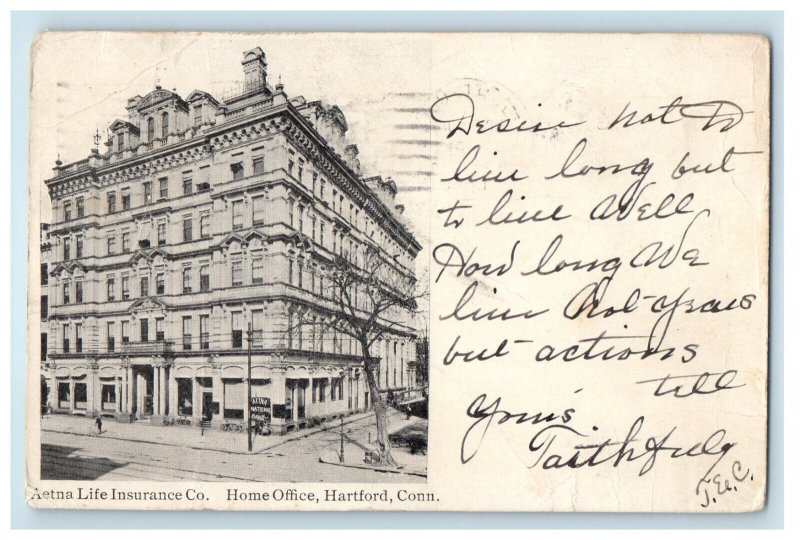 Desire not to
live long but
to live Well
How long We
live Not years
but actions
tell
Your's
Faithfully
AETNA
NATIONAL
BANK
Aetna Life Insurance Co. Home Office, Hartford, Conn.